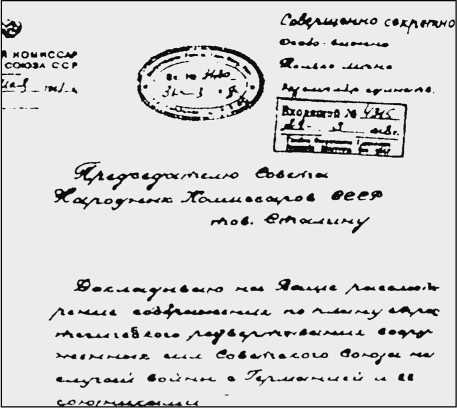 Совершенно секретно
Особо важно
Только лично
Й КОМИССАР
СОЮЗА ССР
Входящий №
Председателю Совета
Народных Комиссаров СССР
тов. Сталину
Докладываю на Ваше рассмот
рение соображения по плану стра
тегического развертывания воору
женных сил Советского Союза на
случай войны с Германией и ее
союзниками